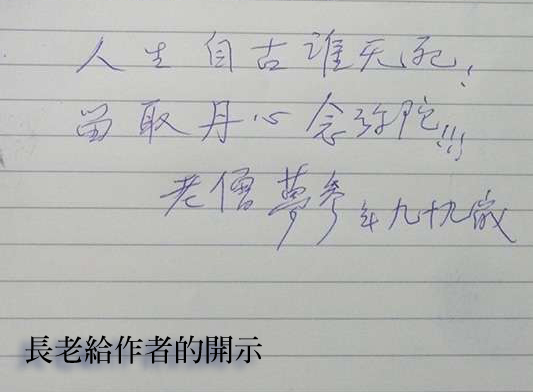 人生自古誰无死！
留取丹心念弥陀!!!
老僧夢參年九十九歲
長老給作者的開示